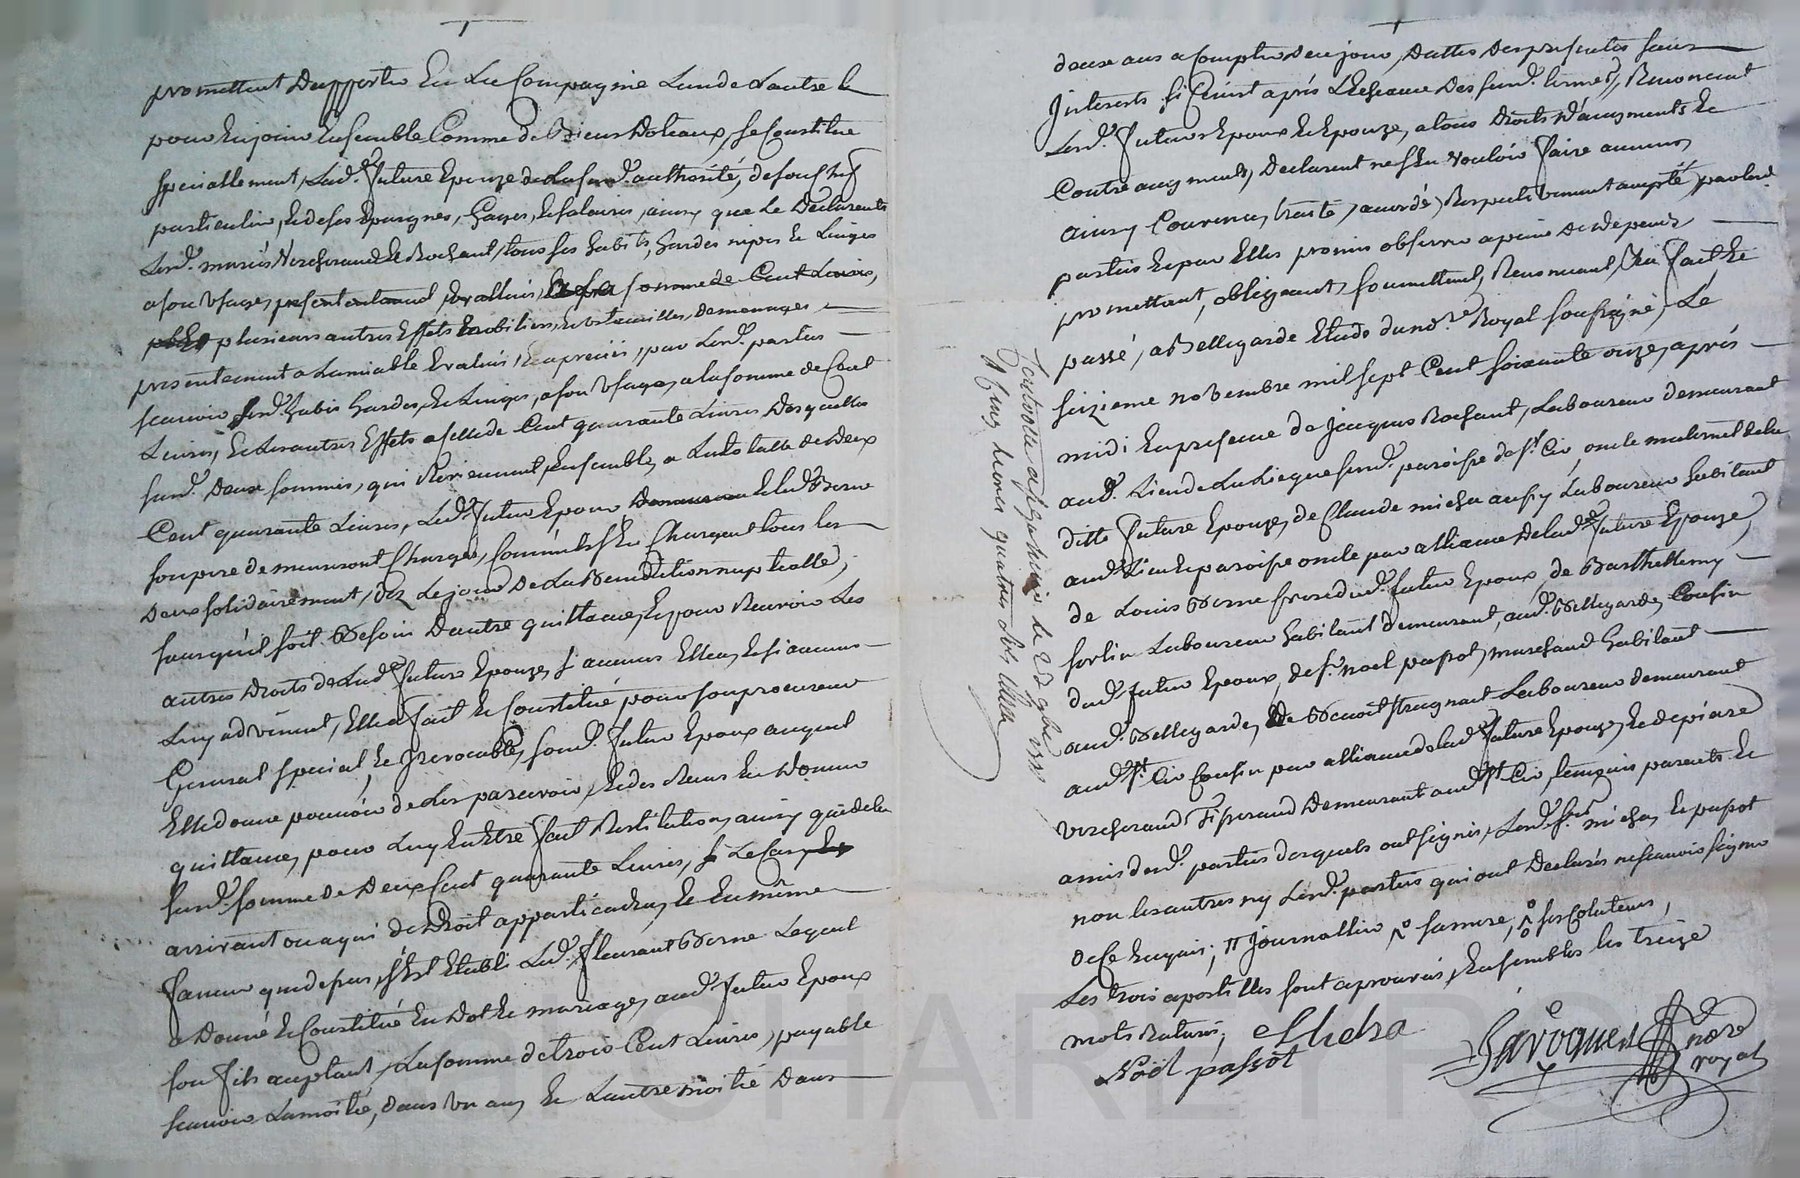 promettent d'apporter En La Compagnie L'un de L'autre le
pour En jouir Ensemble Comme de Biens dotaux, se Constitue
specialement, Lad.e future Epouze de Lasusd. authorité, de son chef
particulier, Et de ses Epargnes, Gages, Et salaires, ainsy que Le Declarents
Lesd. mariés Vercherand Et Rochant, tous ses habits, hardes nipes Et Linges
a son Usage, presentement Evalués, somme de Cent Livres,
plusieurs autres Effets mobiliers, Et Ustancilles, de menages
presentement a L'amiable Evalués, Et apreciés, par Lesd. parties
scavoir Lesd. habis hardes, Et Linges, a son Usage, a la somme de Cent
Livres, Et Les autres Effets a celle de Cent quarante Livres Desquelles
susd. Deux sommes, qui Reviennent, Ensemble, a La totalle de deux
Cent quarante Livres, Led. futur Epoux Et Led. Berne
son pere demeuront Chargés, Comme ils s'En Chargent tous les
Deux solidairement, dez Le jour De La Benediction nuptialle,
sans qu'il soit Besoin D'autre quittance, Et pour Recevoir Les
autres Droits de Lad.e future Epouze, si aucuns Elle a, Et si aucuns
Luy advienent, Elle a fait Et Constitué pour son procureur
General special, Et Irrevocable, sond. futur Epoux auquel
Elle donne pouvoir de Les parcevoir, Et des Reçus En Donner
quittance, pour Luy En Etre fait Restitution, ainsy que de la
susd. somme de Deux Cent quarante Livres, Le Cas
arrivant ou a qui de Droit appartiendra, Et En même
faveur que depuis, s'Est Etabli Led. fleurant Berne Lequel
a Donné Et Constitué En Dot Et mariage, aud. futur Epoux
son fils acceptant, La somme de trois Cent Livres, payable
scavoir La moitié, dans Un an, Et L'autre moitié Dans
deux ans a Compter De ce jour, Datte Des presentes sans
Interests si Ce n'est aprés L'Echeance Des susd. termes, Renoncent
Lesd. futurs Epoux Et Epouze, a tous Droits D'augments Et
Contre augments, Declarent ne s'En Vouloir faire aucuns
ainsy Convenu, traité, accordé, Respectivement accepté, par Lesd.
parties Et par Elles promis observer a peine De Depends
promettent, obligeant, soumettant, Renoncant, Etc fait Et
passé, a Bellegarde Etude du no.re Royal soussigné, Le
seizieme novembre mil sept Cent soixante onze, aprés
midi En presence de Jacques Rochant, Laboureur demeurant
aud. Lieu de La Liegue susd. paroisse de s.t Cir, oncle maternel de la
ditte future Epouze, de Claude michas aussy Laboureur habitant
aud. Lieu Et paroisse oncle par alliance de Lad.e future Epouze,
de Louis Berne frere dud. futur Epoux, de Barthellemy
fortin Laboureur habitant demeurant, aud. Bellegarde, Cousin
dud. futur Epoux, de s.r noel papot, marchand habitant
aud. Bellegarde, de Benoit Laboureur demeurant
aud. s.t Cir Cousin par alliance de Lad. future Epouze, Et de pierre
Vercherand tisserand Demeurant aud. s.t Cir, temoins parents Et
amis desd. parties desquels ont signés, Lesd. s.rs michas, Et papot
non Les autres ny Lesd. parties qui ont Declarés ne scavoir signer
de Ce Enquis; journallier, femme,
Les trois apostilles sont aprouvées, Ensembles Les treize
mots Raturés,
Noël passot
Javogues
no.re
royal
Controllé a